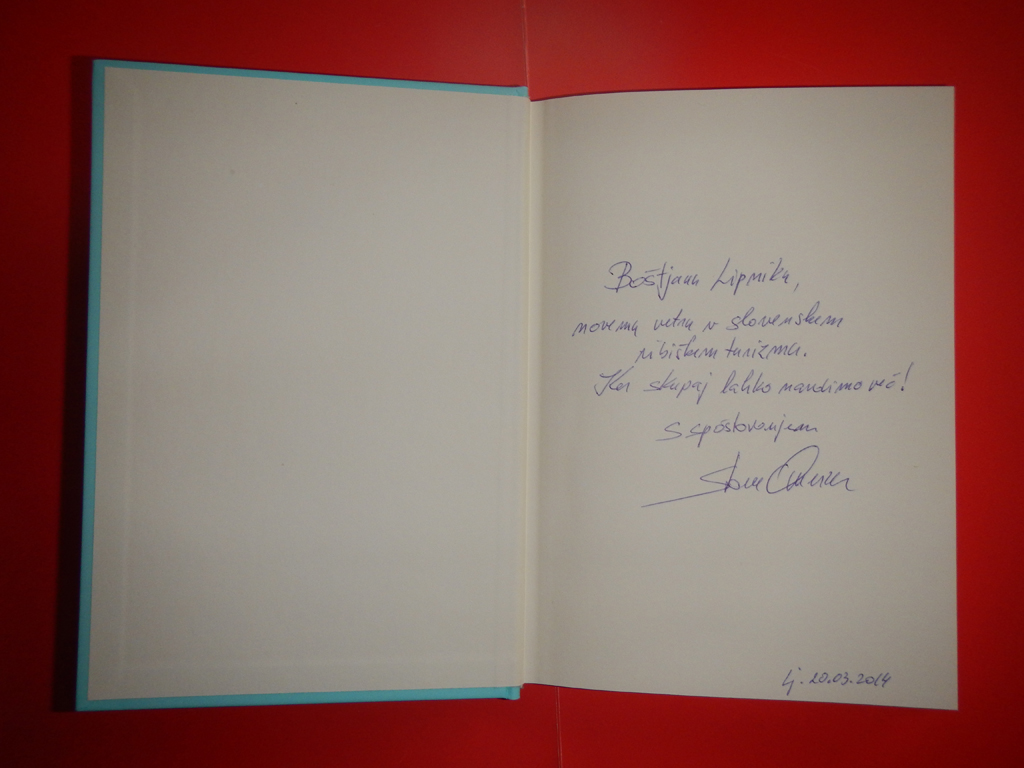 Boštjanu Lipniku,
novemu vetru v slovenskem
ribiškem turizmu.
Ker skupaj lahko naredimo več!
S spoštovanjem
Lj. 20.03.2014